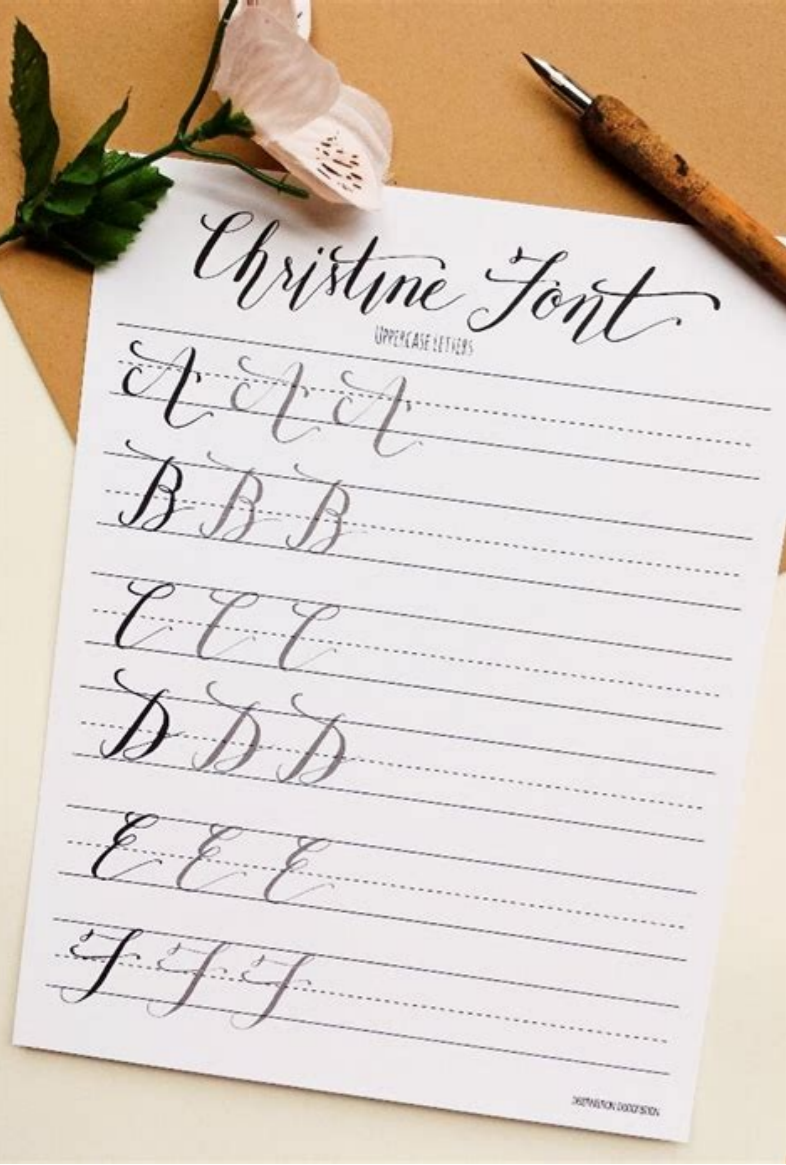 Christine Font
UPPERCASE LETTERS
A A A
B B B
C C C
D D D
E E E
F F F